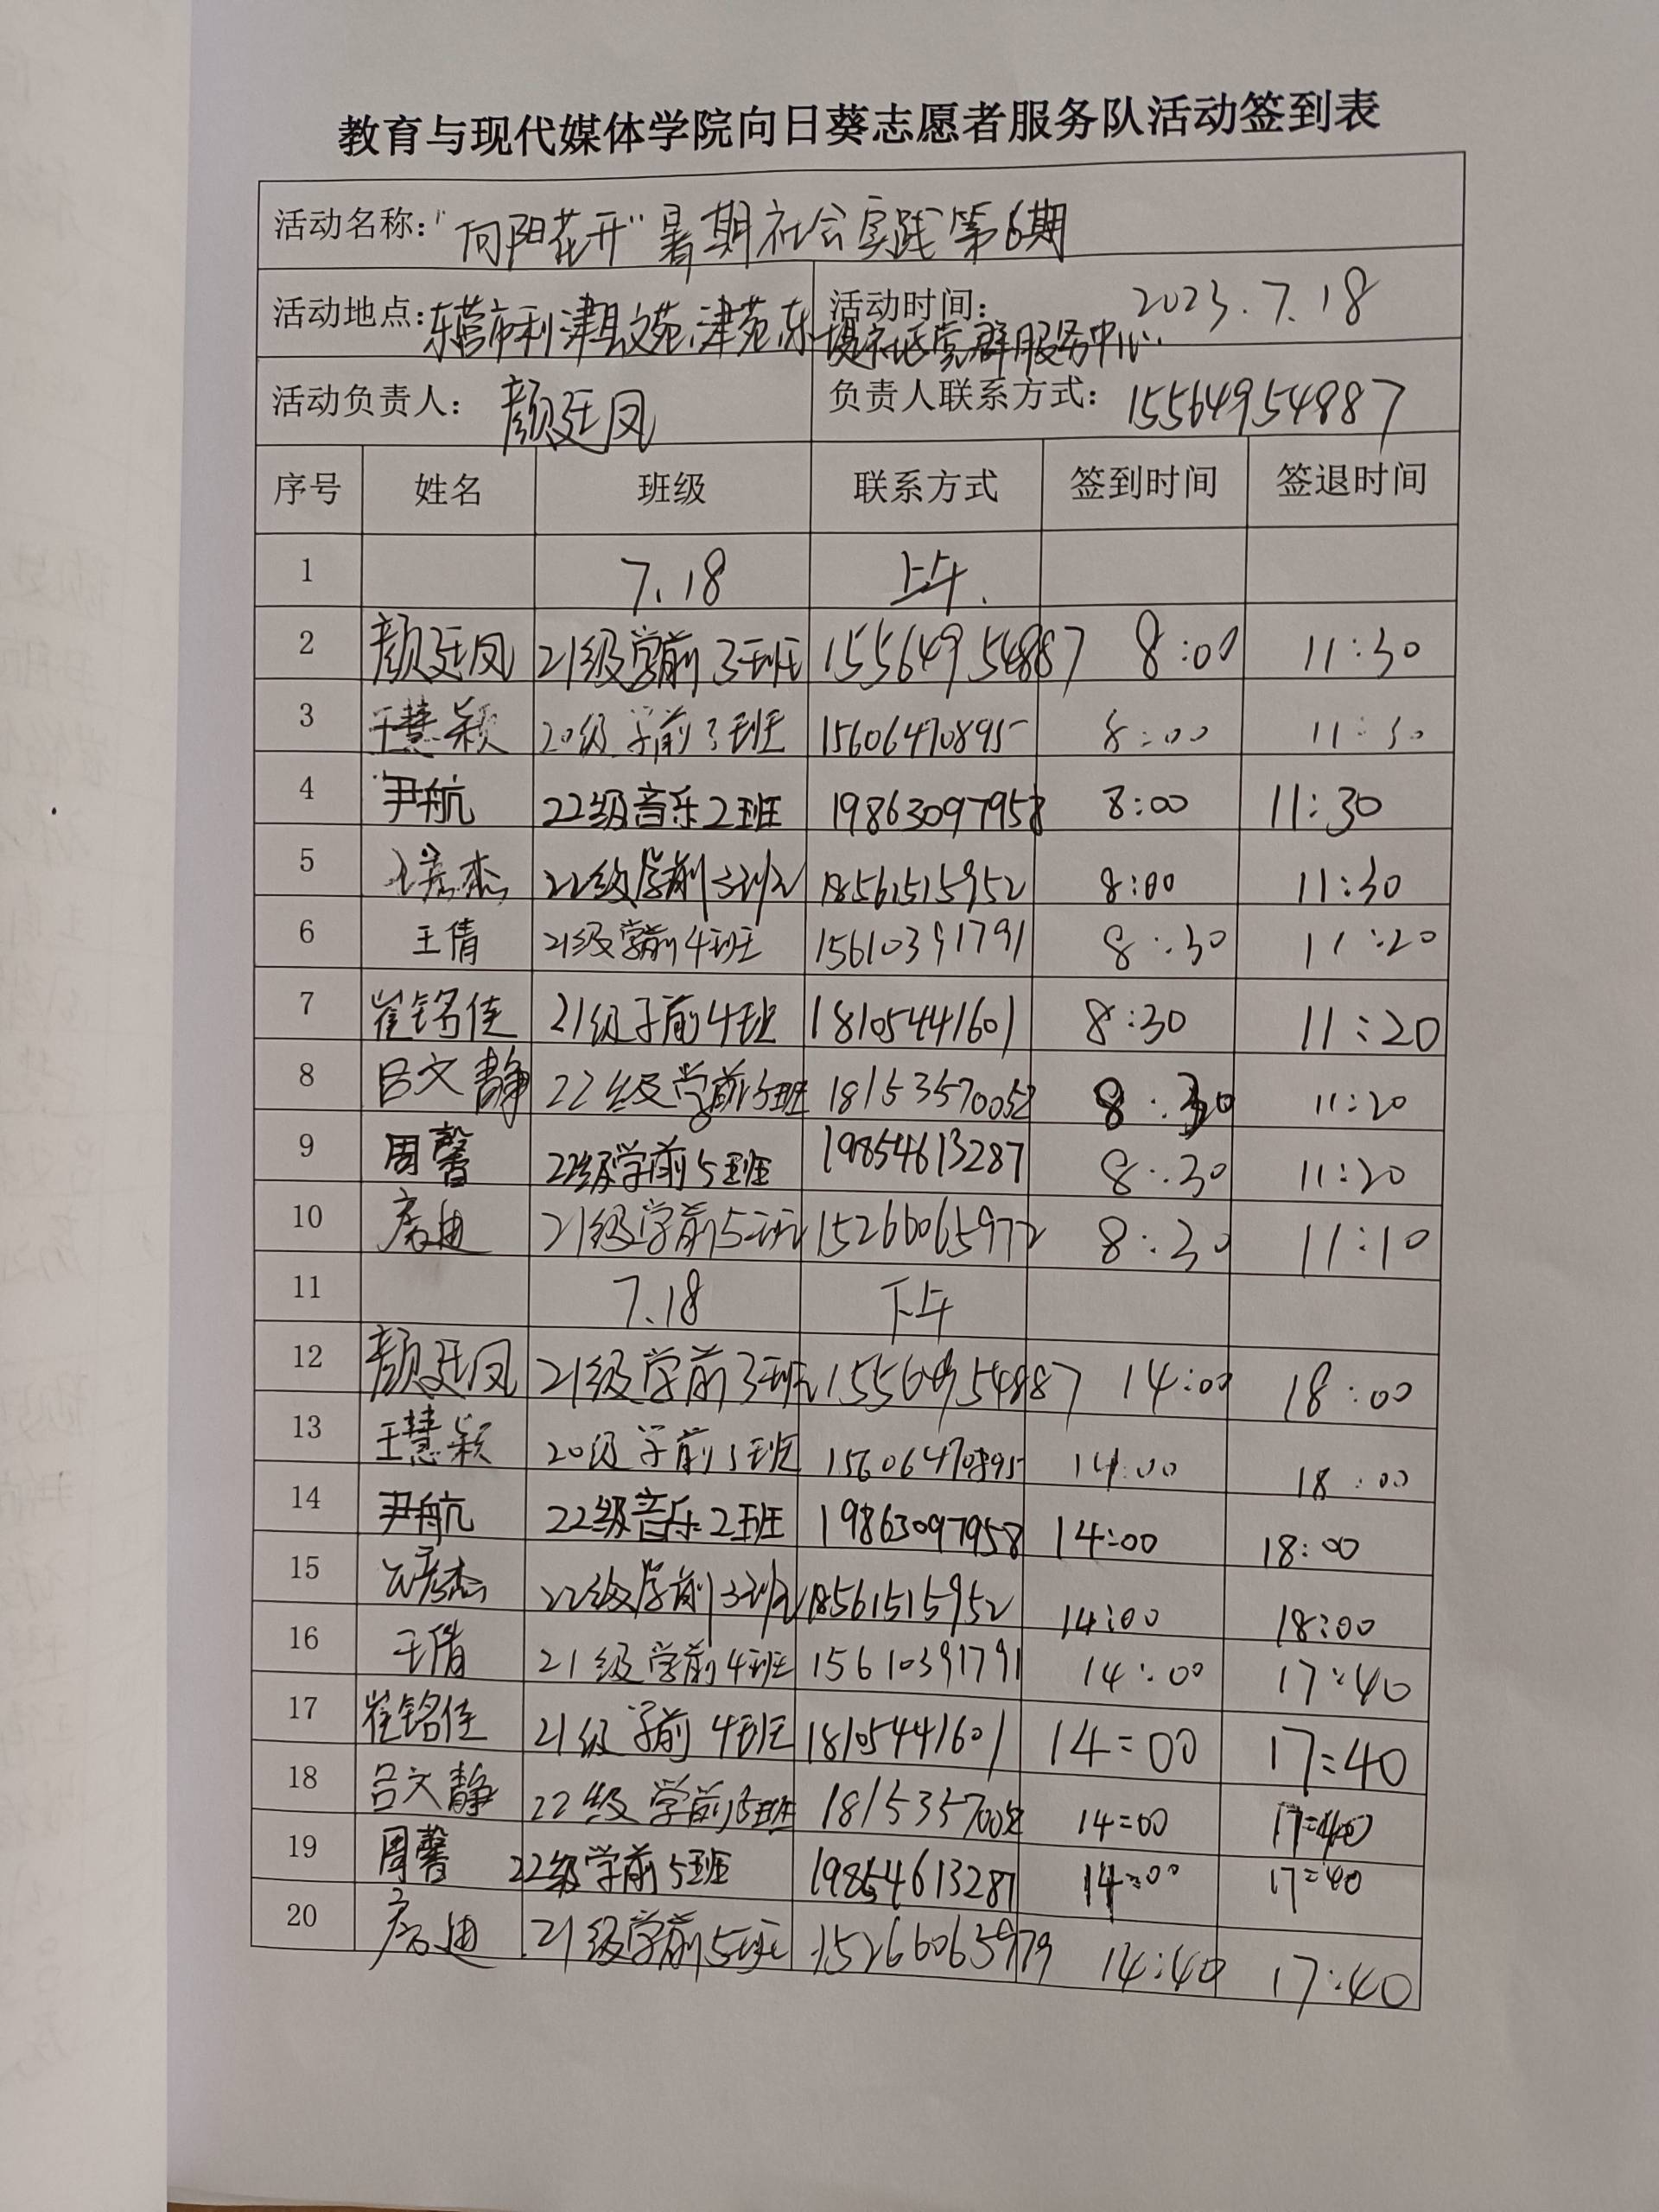 教育与现代媒体学院向日葵志愿者服务队活动签到表
活动名称:"向阳花开"暑期社会实践第6期
活动地点:东营市利津县文苑、津苑、东堤社区党群服务中心. 活动时间: 2023.7.18
活动负责人: 颜廷凤 负责人联系方式: 15564954887
序号 姓名 班级 联系方式 签到时间 签退时间
1 7.18 上午.
2 颜廷凤 21级学前3班 15564954887 8:00 11:30
3 王慧颖 20级学前3班 15606470895 8:00 11:30
4 尹航 22级音乐2班 19863097958 8:00 11:30
5 22级学前3班 18561515952 8:00 11:30
6 王倩 21级学前4班 15610391791 8:30 11:20
7 崔铭佳 21级学前4班 18105441601 8:30 11:20
8 吕文静 22级学前5班 18153570052 8:30 11:20
9 周馨 22级学前5班 19854613287 8:30 11:20
10 房迪 21级学前5班 8:30 11:10
11 7.18 下午
12 颜廷凤 21级学前3班 15564954887 14:00 18:00
13 王慧颖 20级学前3班 15606470895 14:00 18:00
14 尹航 22级音乐2班 19863097958 14:00 18:00
15 22级学前3班 18561515952 14:00 18:00
16 王倩 21级学前4班 15610391791 14:00 17:40
17 崔铭佳 21级学前4班 18105441601 14:00 17:40
18 吕文静 22级学前5班 18153570052 14:00 17:40
19 周馨 22级学前5班 19854613287 14:00 17:40
20 房迪 21级学前5班 14:40 17:40